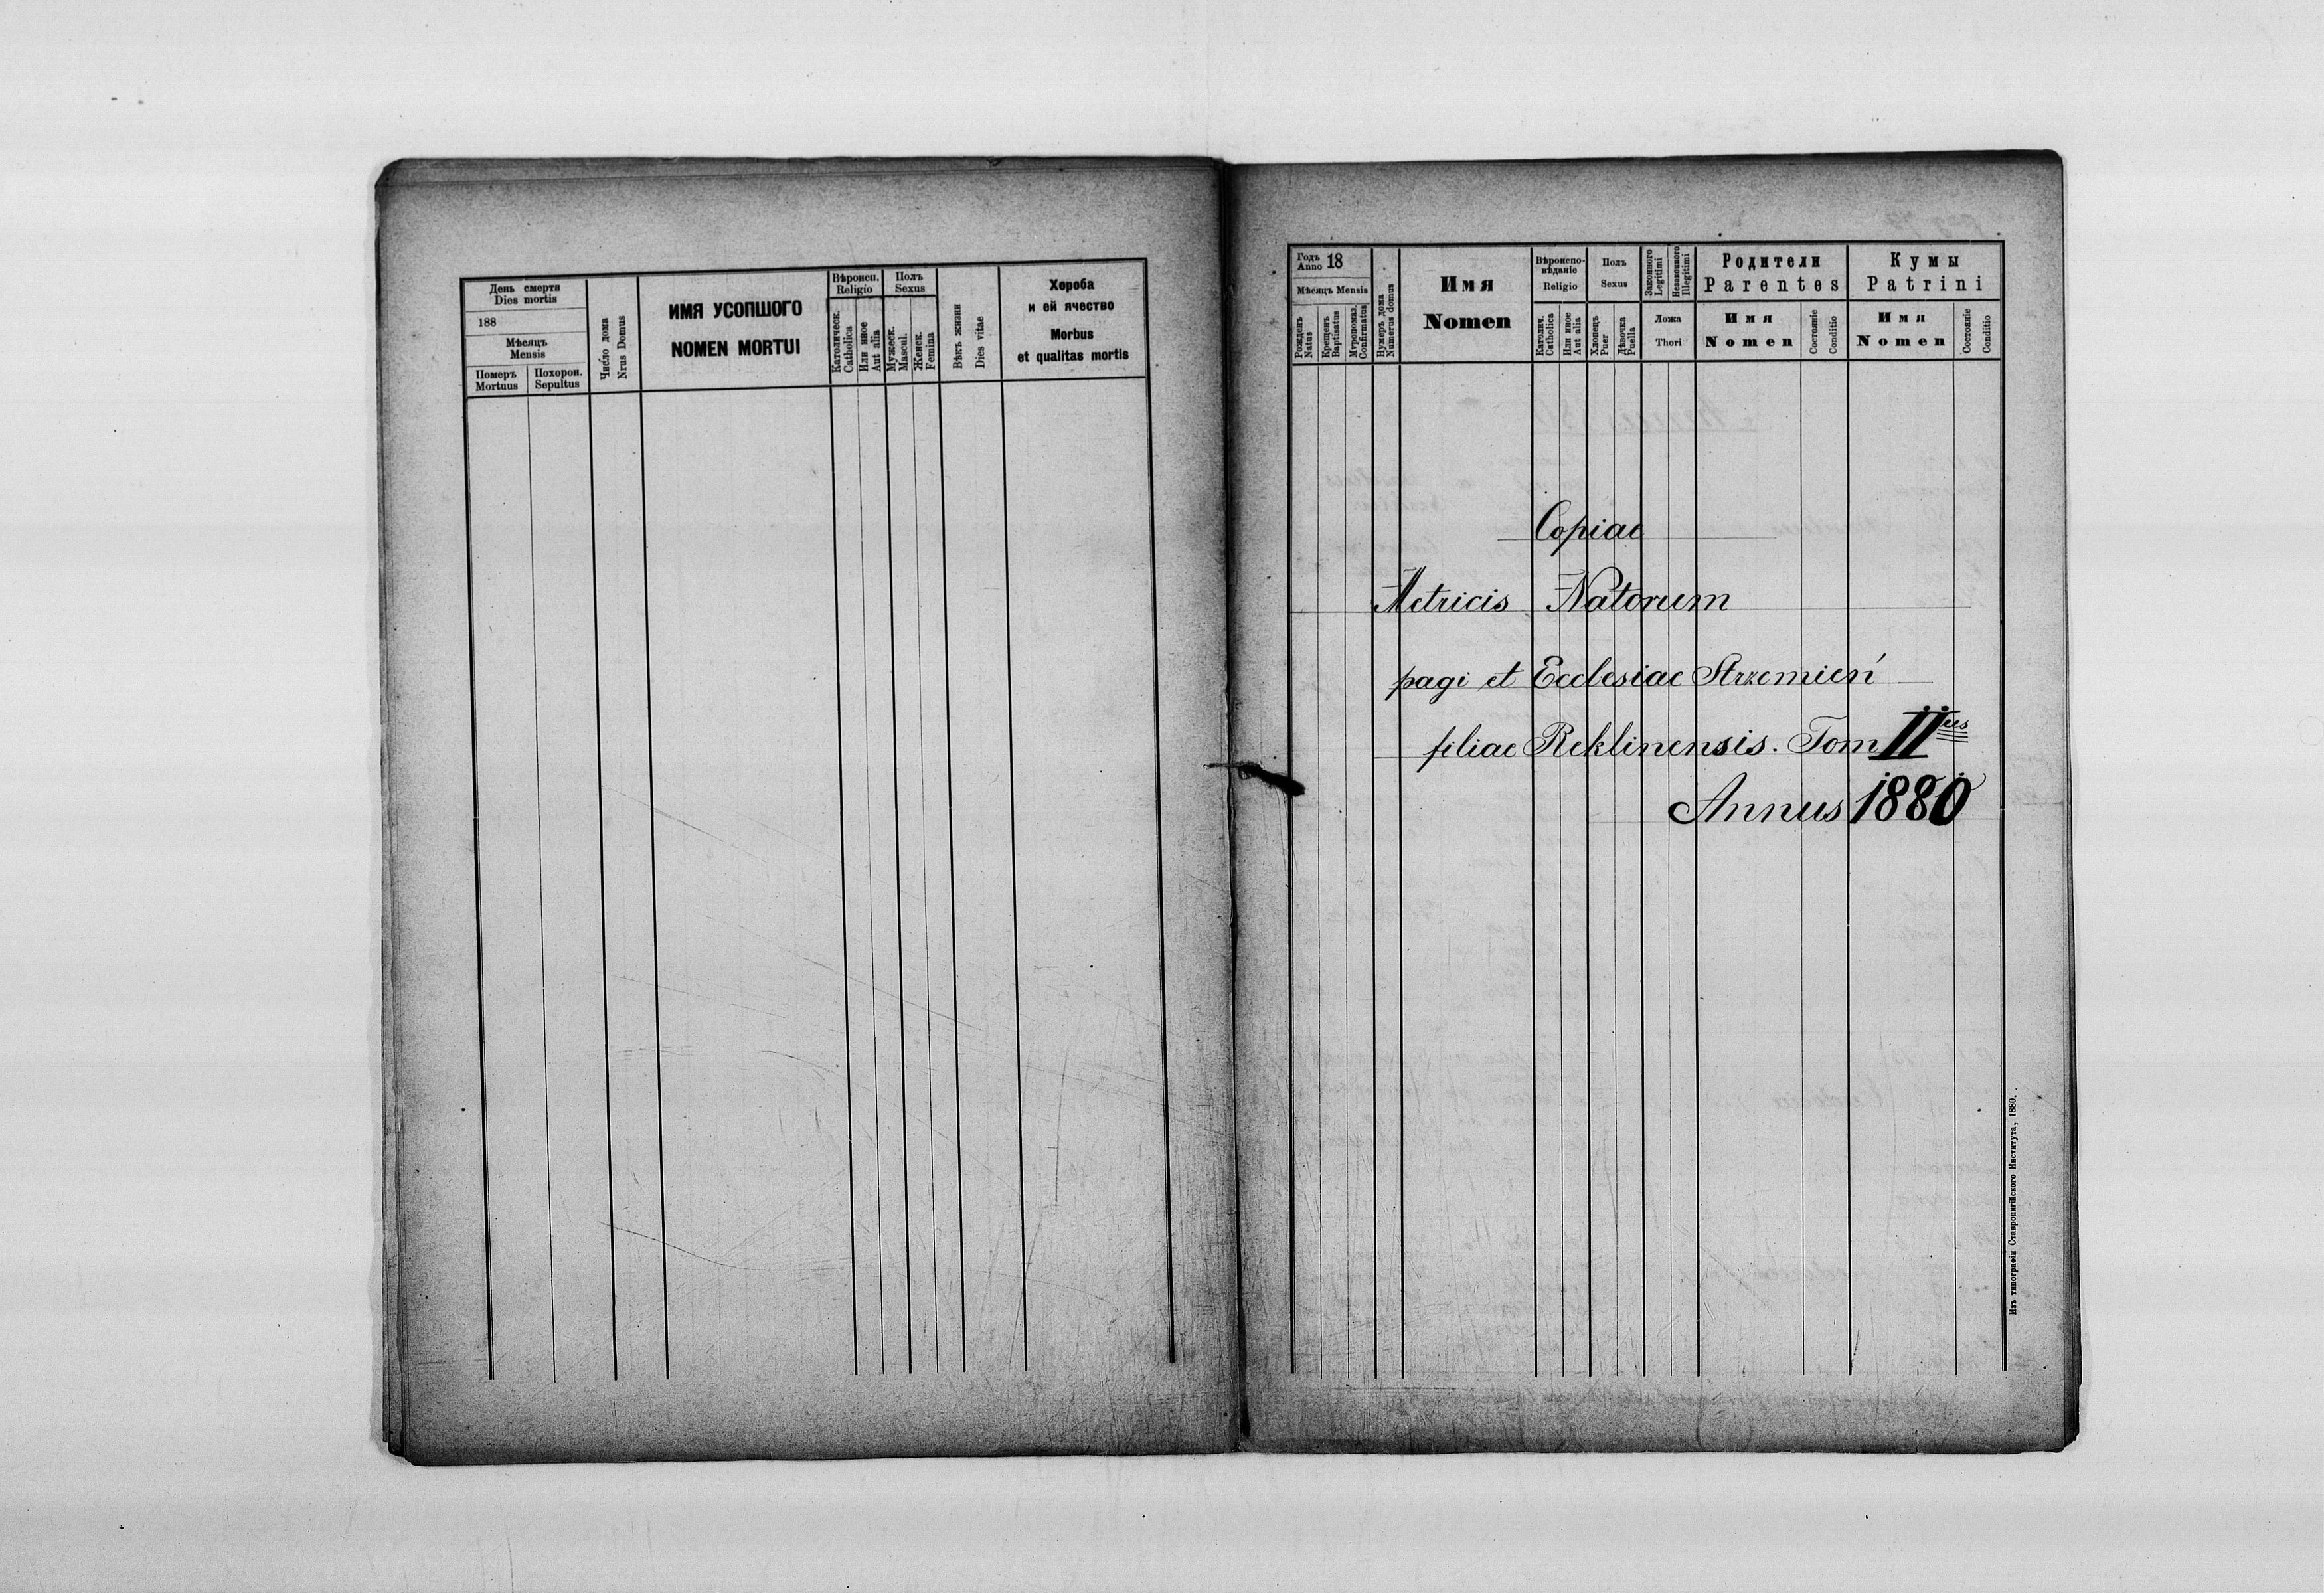 День смерти
Dies mortis
188
Мѣсяцъ
Mensis
Померъ
Mortuus
Похорон.
Sepultus
Число дома
Nrus Domus
ИМЯ УСОПШОГО
NOMEN MORTUI
Вѣроисп.
Religio
Католическ.
Catholica
Или иное
Aut alia
Полъ
Sexus
Мужеск.
Mascul.
Женск.
Femina
Вѣкъ жизни
Dies vitae
Хороба
и ей ячество
Morbus
et qualitas mortis
Годъ
Anno 18
Мѣсяцъ Mensis
Рожденъ
Natus
Крещенъ
Baptisatus
Мѵропомаз.
Confirmatus
Нумеръ дома
Numerus domus
Имя
Nomen
Вѣроиспо-
вѣданіе
Religio
Католич.
Catholica
Или иное
Aut alia
Полъ
Sexus
Хлопецъ
Puer
Дѣвочка
Puella
Законного
Legitimi
Незаконного
Illegitimi
Ложа
Thori
Родители
Parentes
Имя
Nomen
Состояніе
Conditio
Кумы
Patrini
Имя
Nomen
Состояніе
Conditio
Copiae
Metricis Natorum
pagi et Ecclesiae Strzemień
filiae Reklinensis. Tom IIus
Annus 1880
Изъ типографіи Ставропигійского Института, 1880.